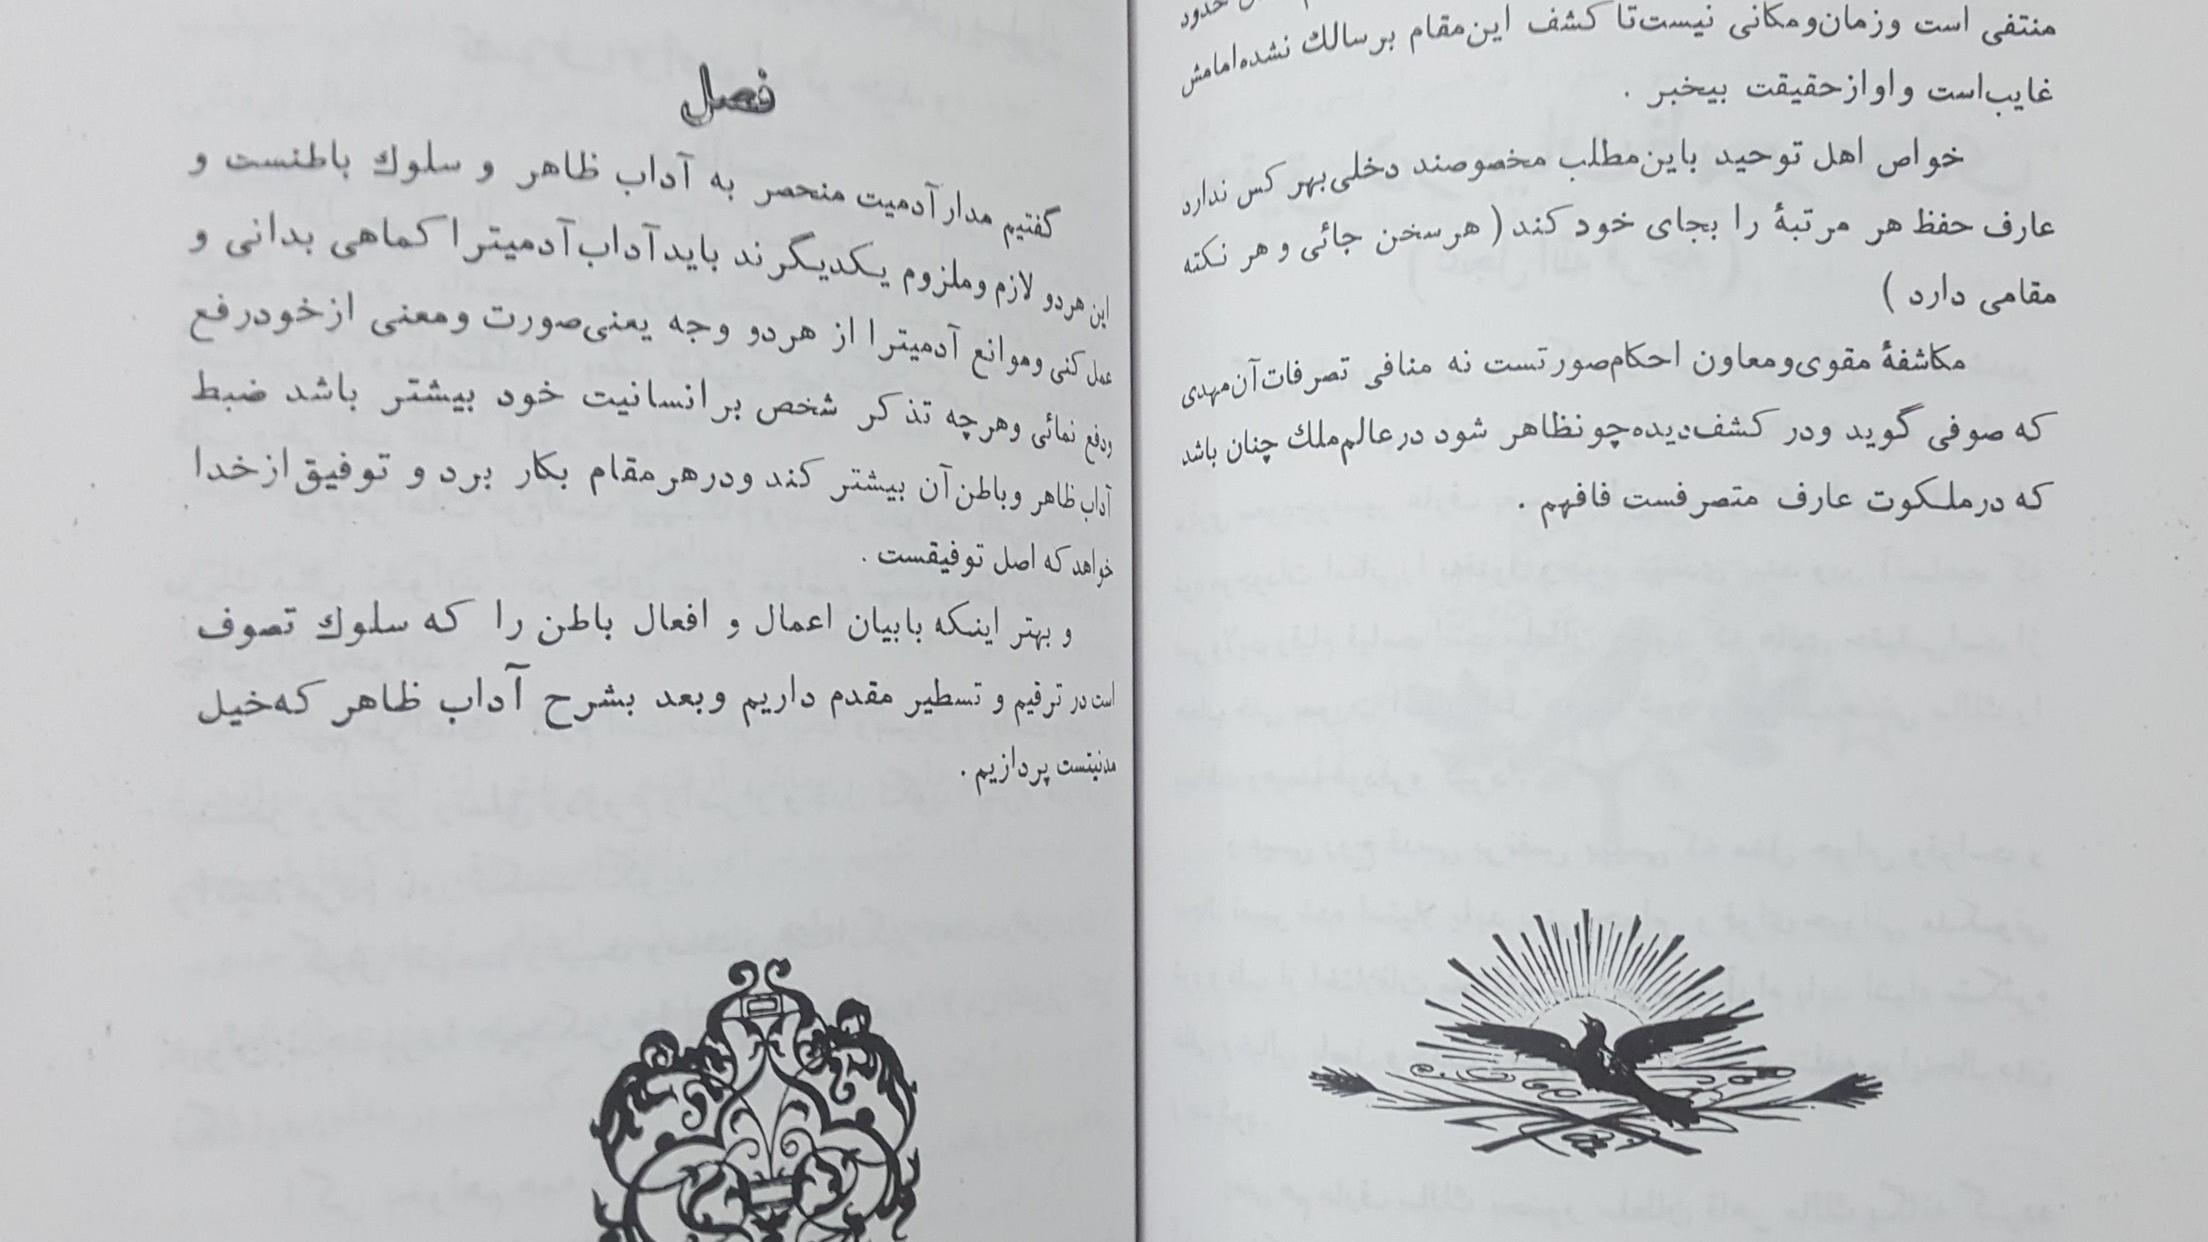 حدود
منتفی است وزمان‌ومکانی نیست‌تا کشف این‌مقام برسالك نشده‌امامش
غایب‌است واوازحقیقت بیخبر .
خواص اهل توحید باین‌مطلب مخصوصند دخلی‌بهر کس ندارد
عارف حفظ هر مرتبهٔ را بجای خود کند ( هرسخن جائی و هر نکته
مقامی دارد )
مکاشفهٔ مقوی‌ومعاون احکام‌صورتست نه منافی تصرفات‌آن‌مهدی
که صوفی گوید ودر کشف‌دیده‌چونظاهر شود درعالم‌ملك چنان باشد
که درملکوت عارف متصرفست فافهم .
فصل
گفتیم مدارآدمیت منحصر به آداب ظاهر و سلوك باطنست و
این هردو لازم وملزوم یکدیگرند بایدآداب‌آدمیترا کماهی بدانی و
عمل کنی وموانع آدمیترا از هردو وجه یعنی‌صورت ومعنی ازخودرفع
ودفع نمائی وهرچه تذکر شخص برانسانیت خود بیشتر باشد ضبط
آداب ظاهر وباطن‌آن بیشتر کند ودرهرمقام بکار برد و توفیق‌ازخدا
خواهد که اصل توفیقست .
و بهتر اینکه بابیان اعمال و افعال باطن را که سلوك تصوف
است در ترقیم و تسطیر مقدم داریم وبعد بشرح آداب ظاهر که‌خیل
مدنیتست پردازیم .